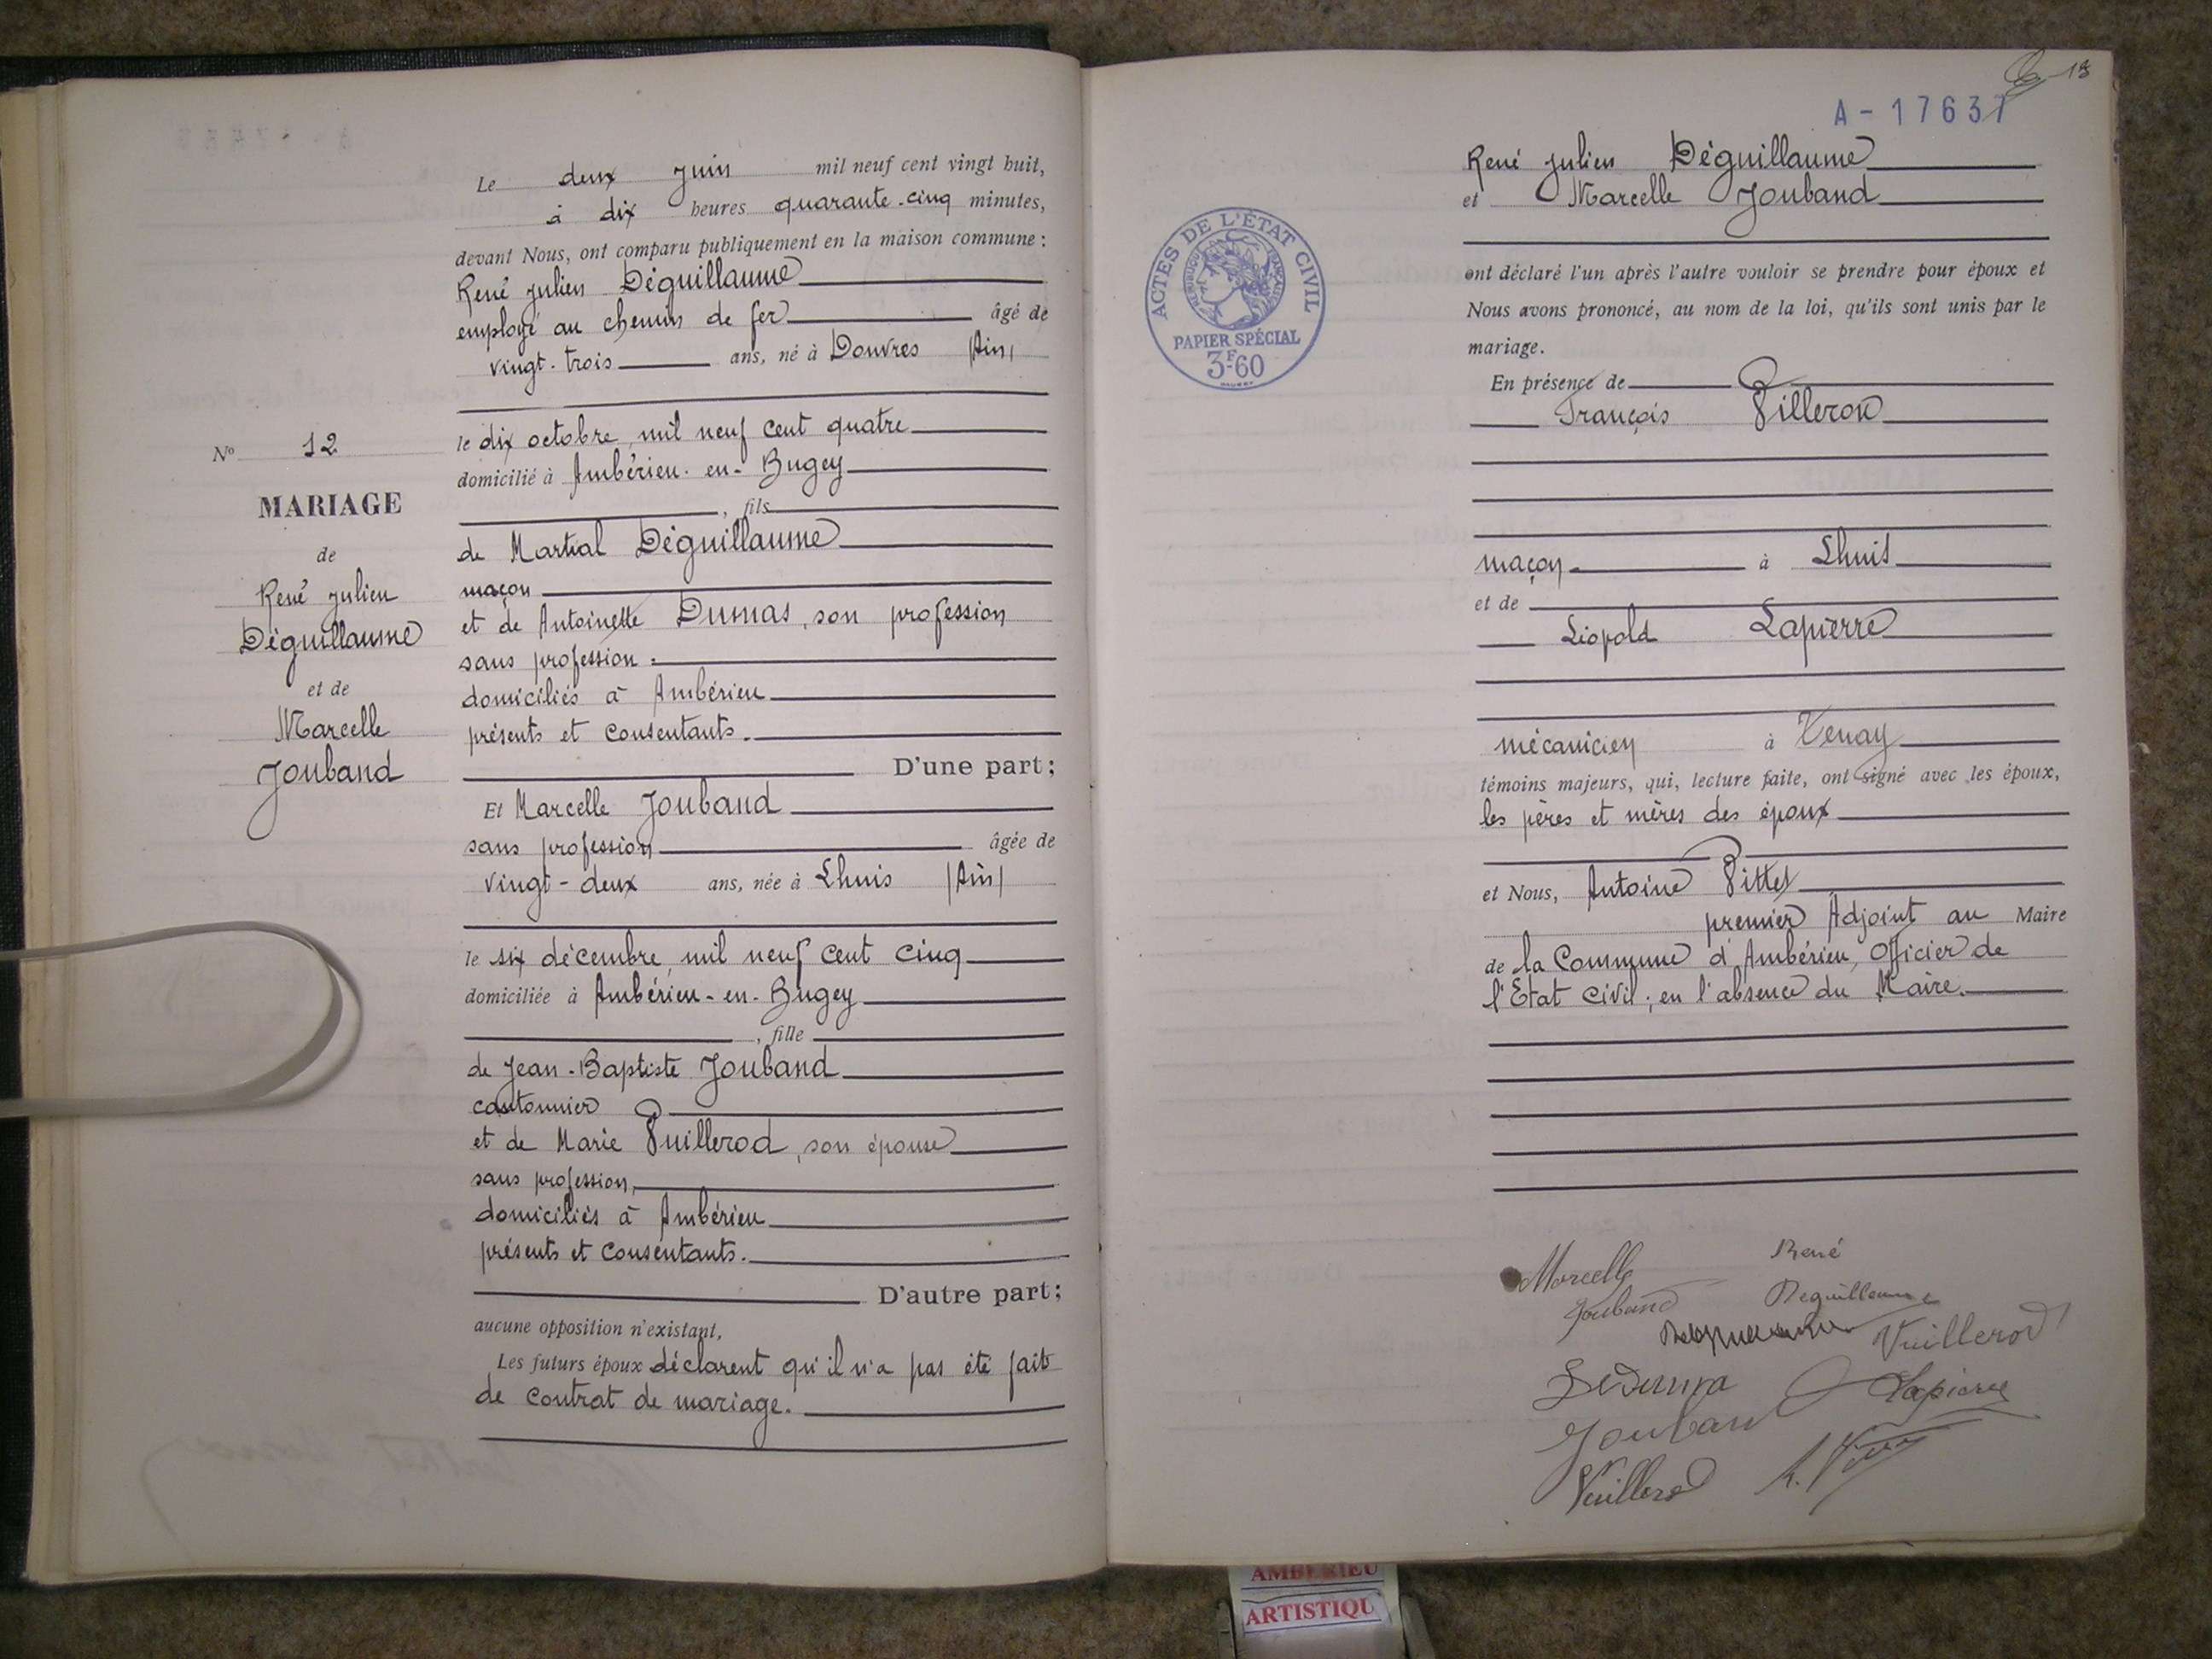 Le deux Juin mil neuf cent vingt huit,
à dix heures quarante-cinq minutes,
devant Nous, ont comparu publiquement en la maison commune :
René Julien Déguillaume
employé au chemin de fer âgé de
vingt-trois ans, né à Douvres (Ain)
le dix octobre, mil neuf cent quatre
domicilié à Ambérieu-en-Bugey
, fils
de Martial Déguillaume
maçon
et de Antoinette Dumas, son profession
sans profession.
domiciliés à Ambérieu
présents et consentants.
D'une part ;
Et Marcelle Jouband
sans profession âgée de
vingt-deux ans, née à Lhuis (Ain)
le six décembre, mil neuf cent cinq
domiciliée à Ambérieu-en-Bugey
, fille
de Jean-Baptiste Jouband
cantonnier
et de Marie Vuillerod, son épouse
sans profession,
domiciliés à Ambérieu
présents et consentants.
D'autre part ;
aucune opposition n'existant,
Les futurs époux déclarent qu'il n'a pas été fait
de contrat de mariage.
No 12
MARIAGE
de
René Julien
Déguillaume
et de
Marcelle
Jouband
13
A - 17637
René Julien Déguillaume
et Marcelle Jouband
ont déclaré l'un après l'autre vouloir se prendre pour époux et
Nous avons prononcé, au nom de la loi, qu'ils sont unis par le
mariage.
En présence de
François Villerod
maçon à Lhuis
et de
Léopold Lapierre
mécanicien à Tenay
témoins majeurs, qui, lecture faite, ont signé avec les époux,
les pères et mères des époux
et Nous, Antoine Vittet
premier Adjoint au Maire
de la Commune d'Ambérieu, Officier de
l'Etat civil, en l'absence du Maire.
ACTES DE L'ÉTAT CIVIL
RÉPUBLIQUE FRANÇAISE
PAPIER SPÉCIAL
3F60
Marcelle
Jouband
René
Deguillaume
Vuillerod
Lapierre
Jouband
Vuillerod
AMBERIEU
ARTISTIQU